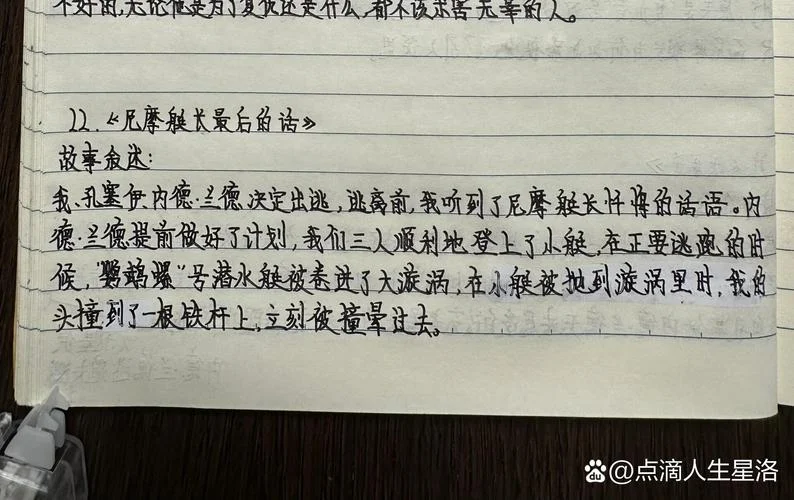 不好的,无论他是为了复仇还是什么,都不该杀害无辜的人。
22.《尼摩艇长最后的话》
故事叙述:
我、孔塞伊内德·兰德决定出逃,逃离前,我听到了尼摩艇长忏悔的话语。内
德·兰德提前做好了计划,我们三人顺利地登上了小艇,在正要逃跑的时
候,"鹦鹉螺"号潜水艇被卷进了大漩涡,在小艇被抛到漩涡里时,我的
头撞到了一根铁杆上,立刻被撞晕过去。
@点滴人生星洛